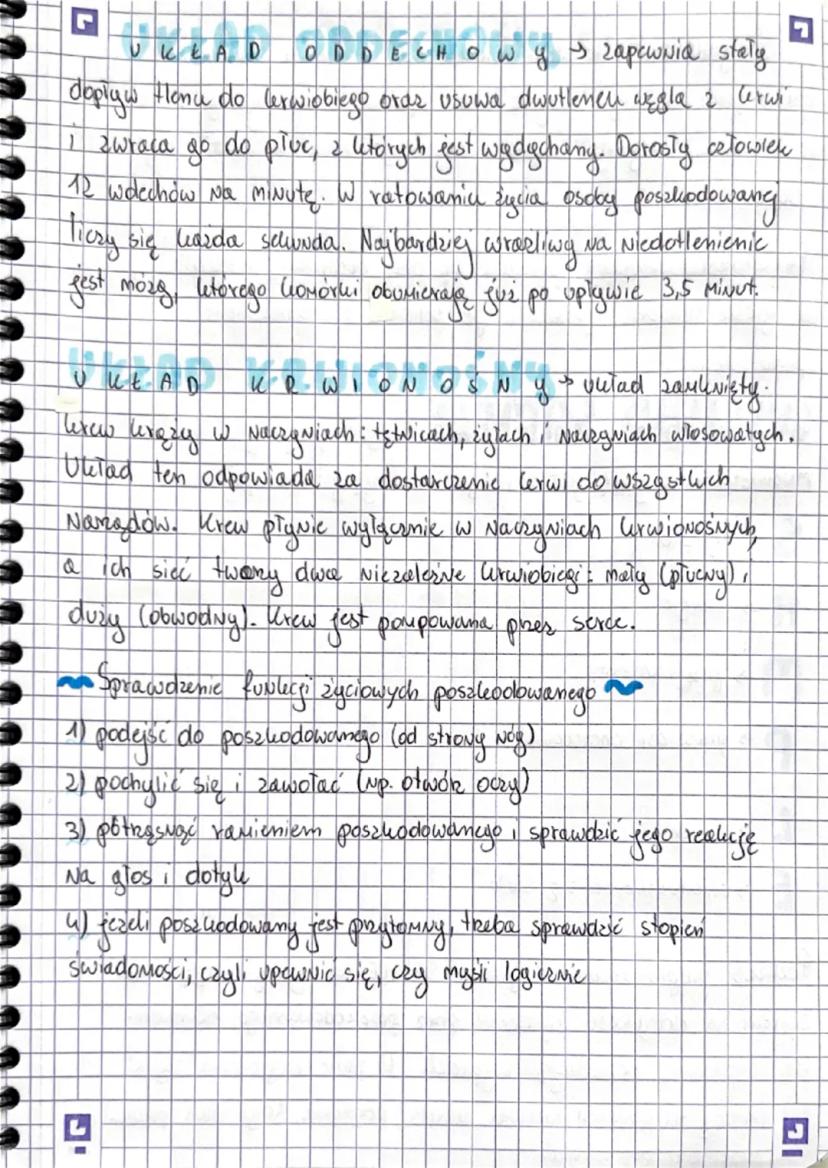 UKŁAD ODDECHOWY → zapewnia stały
dopływ tlenu do krwiobiego oraz usuwa dwutlenek węgla z krwi
i zwraca go do płuc, z których jest wydychany. Dorosły człowiek
12 wdechów na minutę. W ratowaniu życia osoby poszkodowanej
liczy się każda sekunda. Najbardziej wrażliwy na niedotlenienie
jest mózg, którego komórki obumierają już po upływie 3,5 minut.
UKŁAD KRWIONOŚNY → układ zamknięty.
krew krąży w naczyniach: tętnicach, żyłach i naczyniach włosowatych.
Układ ten odpowiada za dostarczenie krwi do wszystkich
narządów. Krew płynie wyłącznie w naczyniach krwionośnych,
a ich sieć tworzy dwa niezależne krwiobiegi: mały (płucny) i
duży (obwodny). Krew jest pompowana przez serce.
Sprawdzenie funkcji życiowych poszkodowanego
1) podejść do poszkodowanego (od strony nóg)
2) pochylić się i zawołać (np. otwórz oczy)
3) potrząsnąć ramieniem poszkodowanego i sprawdzić jego reakcję
na głos i dotyk
4) jeżeli poszkodowany jest przytomny, trzeba sprawdzić stopień
świadomości, czyli upewnić się, czy myśli logicznie